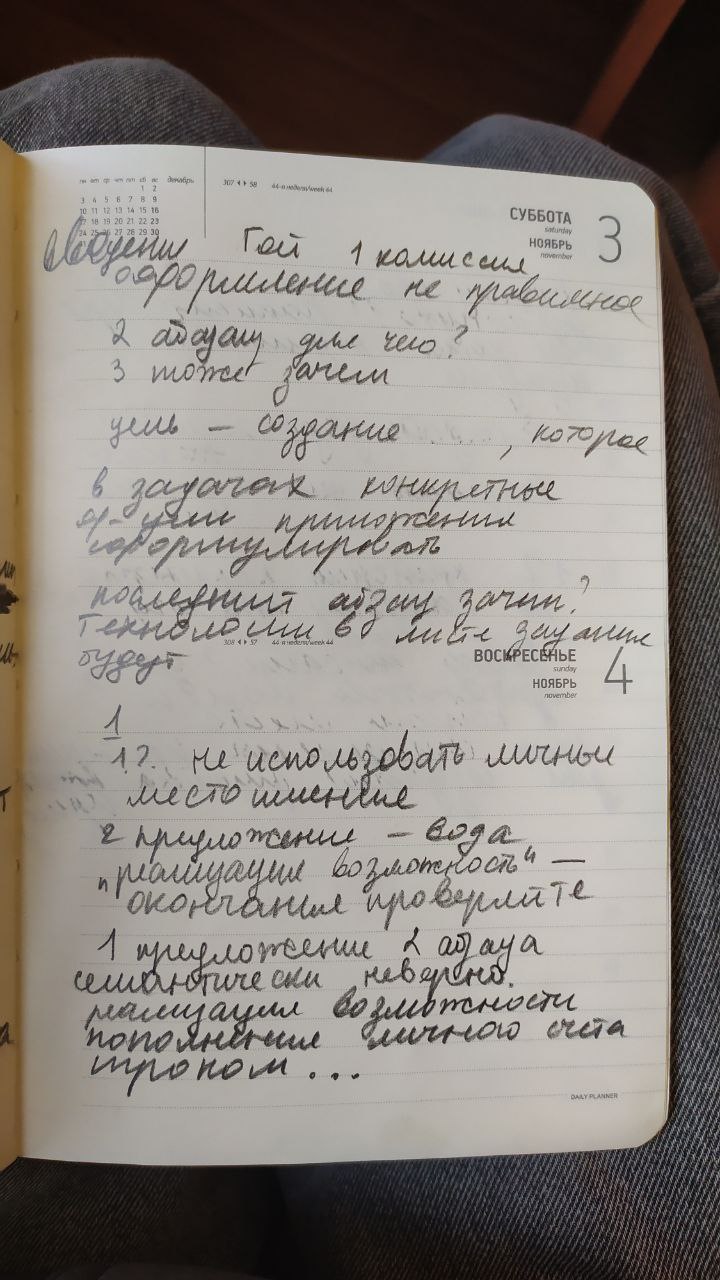 пн вт ср чт пт сб вс декабрь
1 2
3 4 5 6 7 8 9
10 11 12 13 14 15 16
17 18 19 20 21 22 23
24 25 26 27 28 29 30
307 ◂ ▸ 58
44-я неделя/week 44
СУББОТА
saturday
НОЯБРЬ
november
3
Гой 1 комиссия
оформление не правильное
2 абзац для чего?
3 тоже зачем
цель – создание ...., которое
в задачах конкретные
ф-ции приложения
сформулировать
последний абзац зачем?
Технологии в листе задания
будут
308 ◂ ▸ 57
44-я неделя/week 44
ВОСКРЕСЕНЬЕ
sunday
НОЯБРЬ
november
4
1
1.2. не использовать личные
местоимение
2 предложение – вода
„реализация возможность" –
окончания проверяйте
1 предложение 2 абзаца
семантически неверно.
реализация возможности
пополнения личного счета
игроком...
DAILY PLANNER